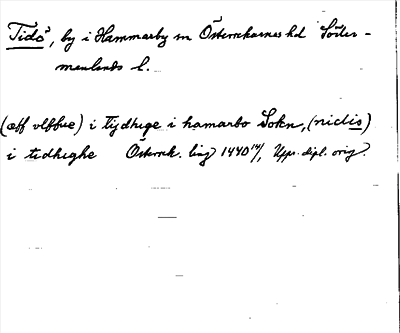 Tidö?, by i Hammarby sn Österrekarnes hd Söder-
manlands l.
(aff vlffue) i Tijdhuge i hamarbo Sokn, (nidis)
i tidhighe Österrek. ting 1440 14/, Upps. dipl. orig.